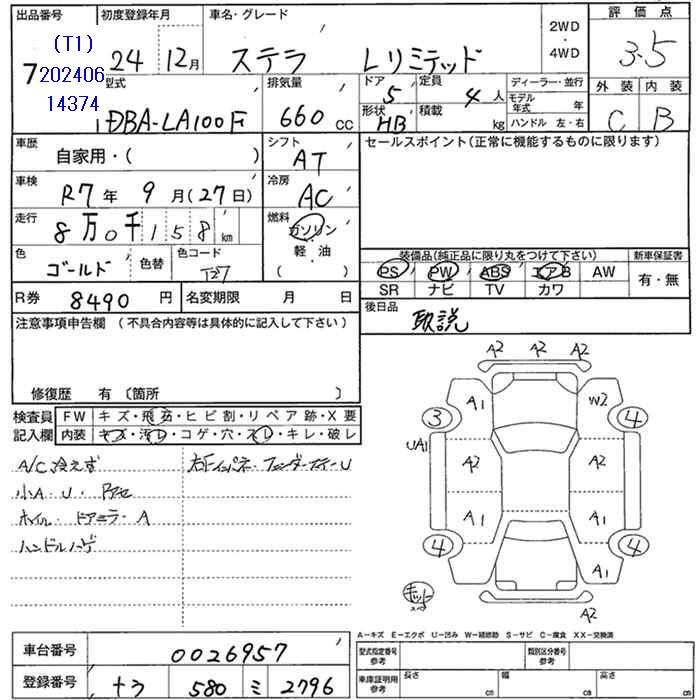 出品番号 初度登録年月 車名・グレード 2WD・4WD 評価点
(T1) 7 202406 14374
24 12月 ステラ Lリミテッド 3.5
型式 排気量 ドア 定員 ディーラー・並行 外装 内装
DBA-LA100F 660 cc 5 4人 モデル年式 年 C B
形状 HB 積載 kg ハンドル 左・右
車歴 自家用・( ) シフト AT セールスポイント(正常に機能するものに限ります)
車検 R7年 9月(27日) 冷房 AC
走行 8万0千158km 燃料 ガソリン 軽・油 ( )
色 ゴールド 色替 色コード T27
装備品(純正品に限り丸をつけて下さい) 新車保証書
PS PW ABS エアB AW 有・無
SR ナビ TV カワ
R券 8490円 名変期限 月 日 後日品 取説
注意事項申告欄 (不具合内容等は具体的に記入して下さい)
修復歴 有 (箇所 )
検査員記入欄 FW キズ・飛石・ヒビ割・リペア跡・X要
内装 キズ・汚レ・コゲ・穴・スレ・キレ・破レ
A/C冷えず
小A・U
ホイル・ドアミラーA
ハンドルハゲ
A2 A2 A2
A1 W2
3 4
UA1 A2 A2
A1 A1
4 4
A1
キット
A2
A-キズ E-エクボ U-凹み W-補修跡 S-サビ C-腐食 XX-交換済
車台番号 0026957 型式指定番号参考 類別区分番号参考
登録番号 ナラ 580 ミ 2796 車庫証明用参考 長さ cm 幅 cm 高さ cm